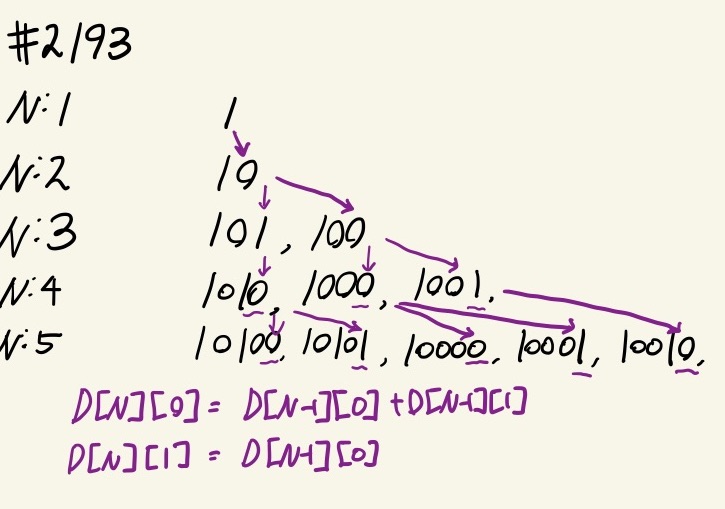 #2193
N:1 1
N:2 10
N:3 101, 100
N:4 1010, 1000, 1001,
N:5 10100, 10101, 10000, 10001, 10010,
D[N][0] = D[N-1][0] + D[N-1][1]
D[N][1] = D[N-1][0]